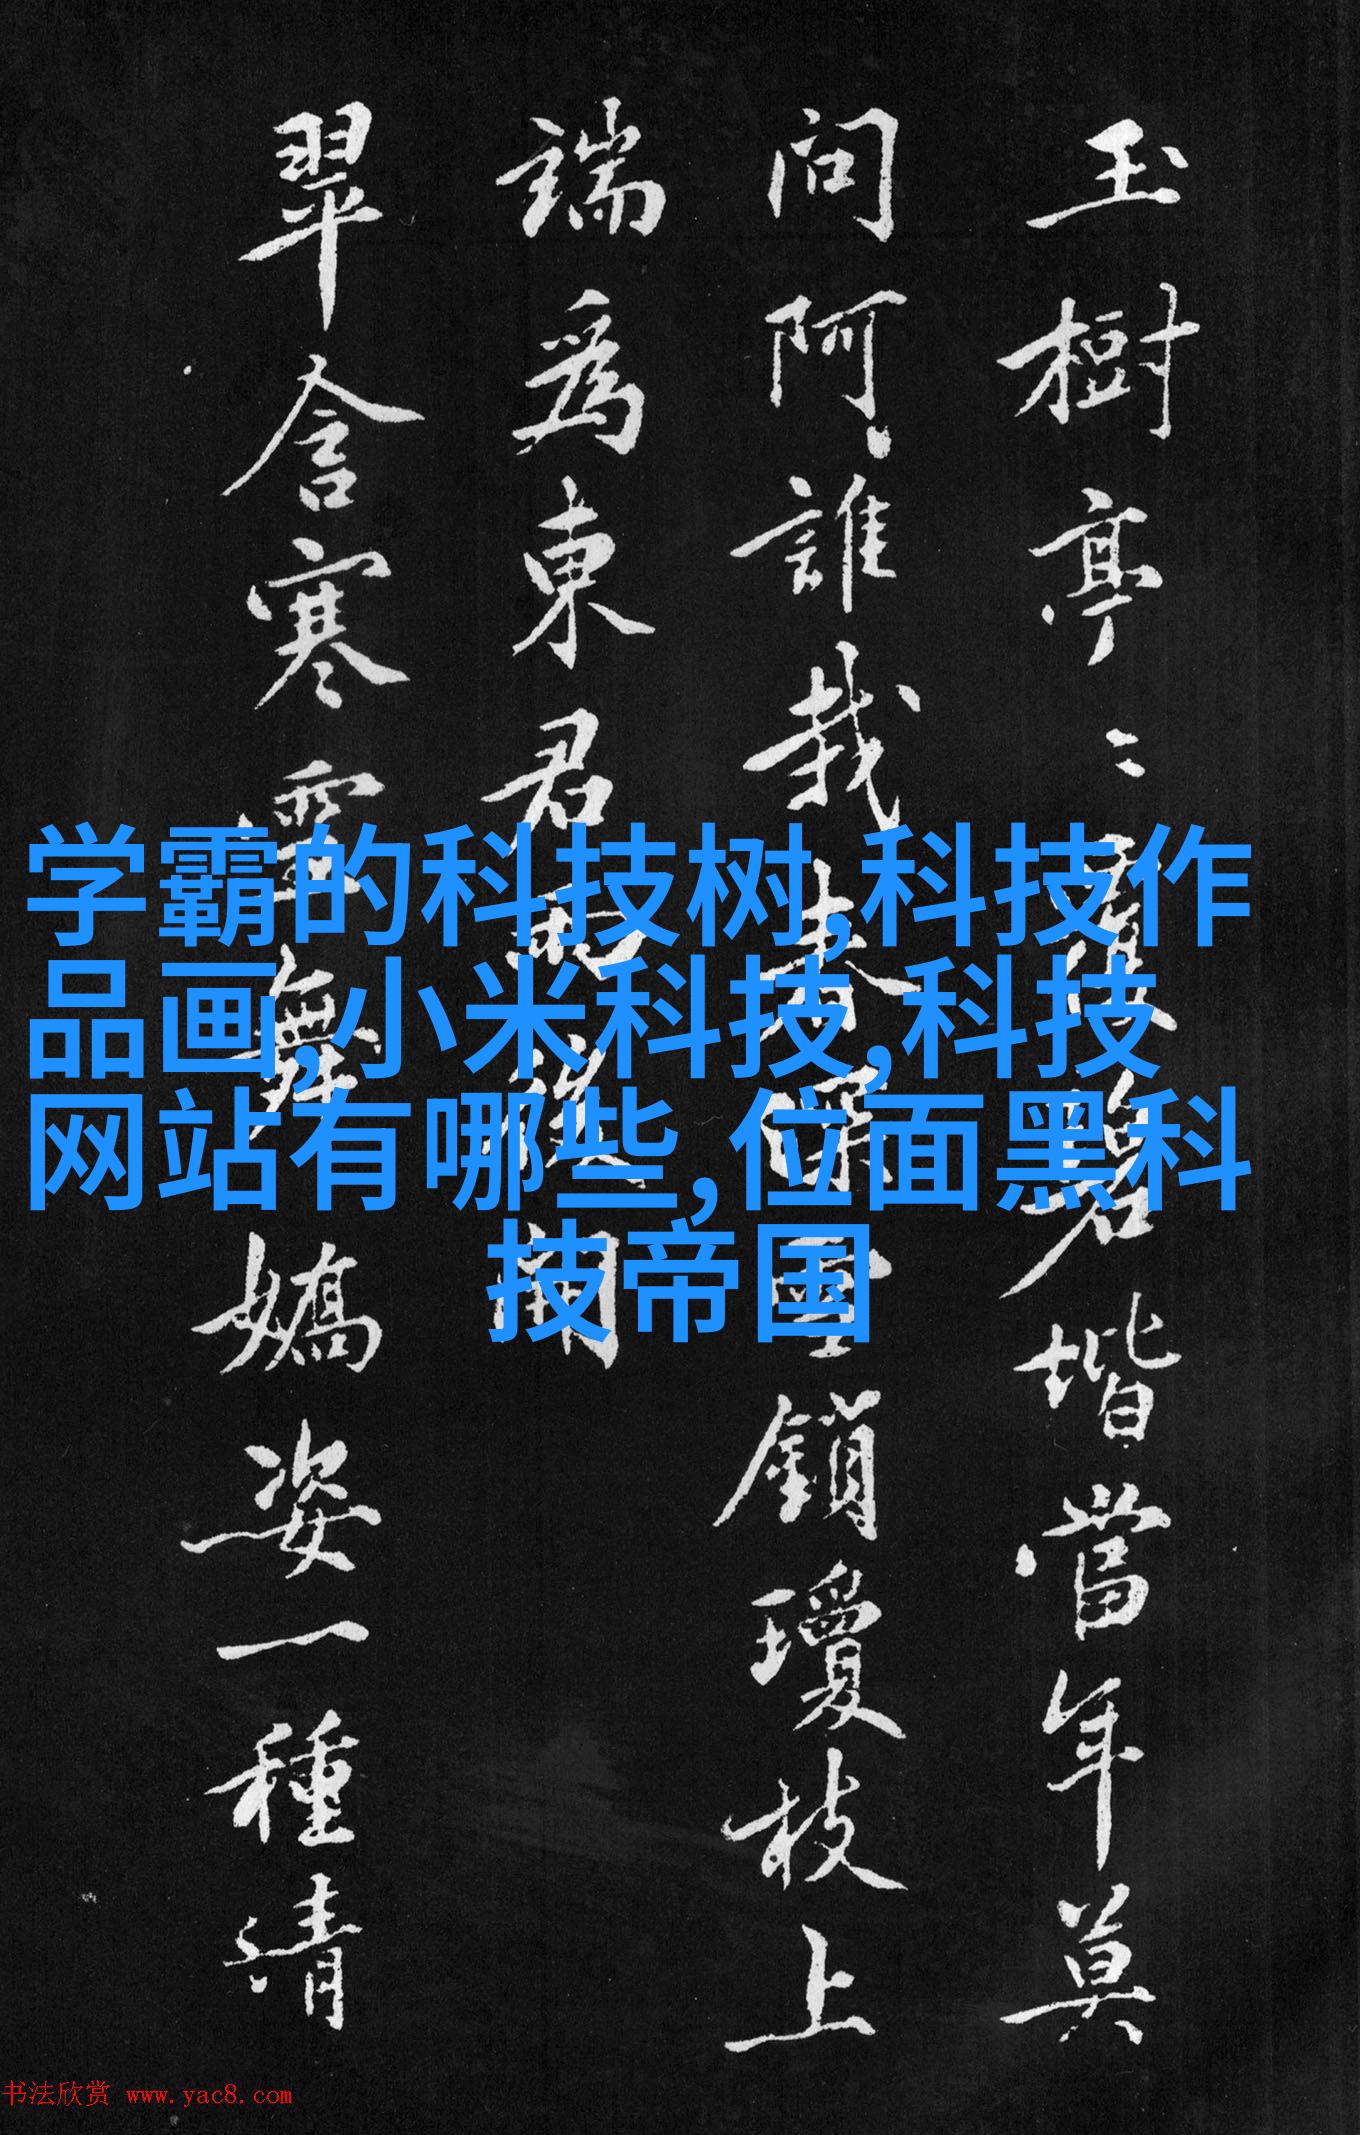 玉樹亭〻碧堦當年莫
問阿誰栽春雪鎖瓊枝上
端爲東君
翠含寒舞嬌姿一種清
学霸的科技树,科技作
品画,小米科技,科技
网站有哪些,位面黑科
技帝国
书法欣赏 www.yac8.com